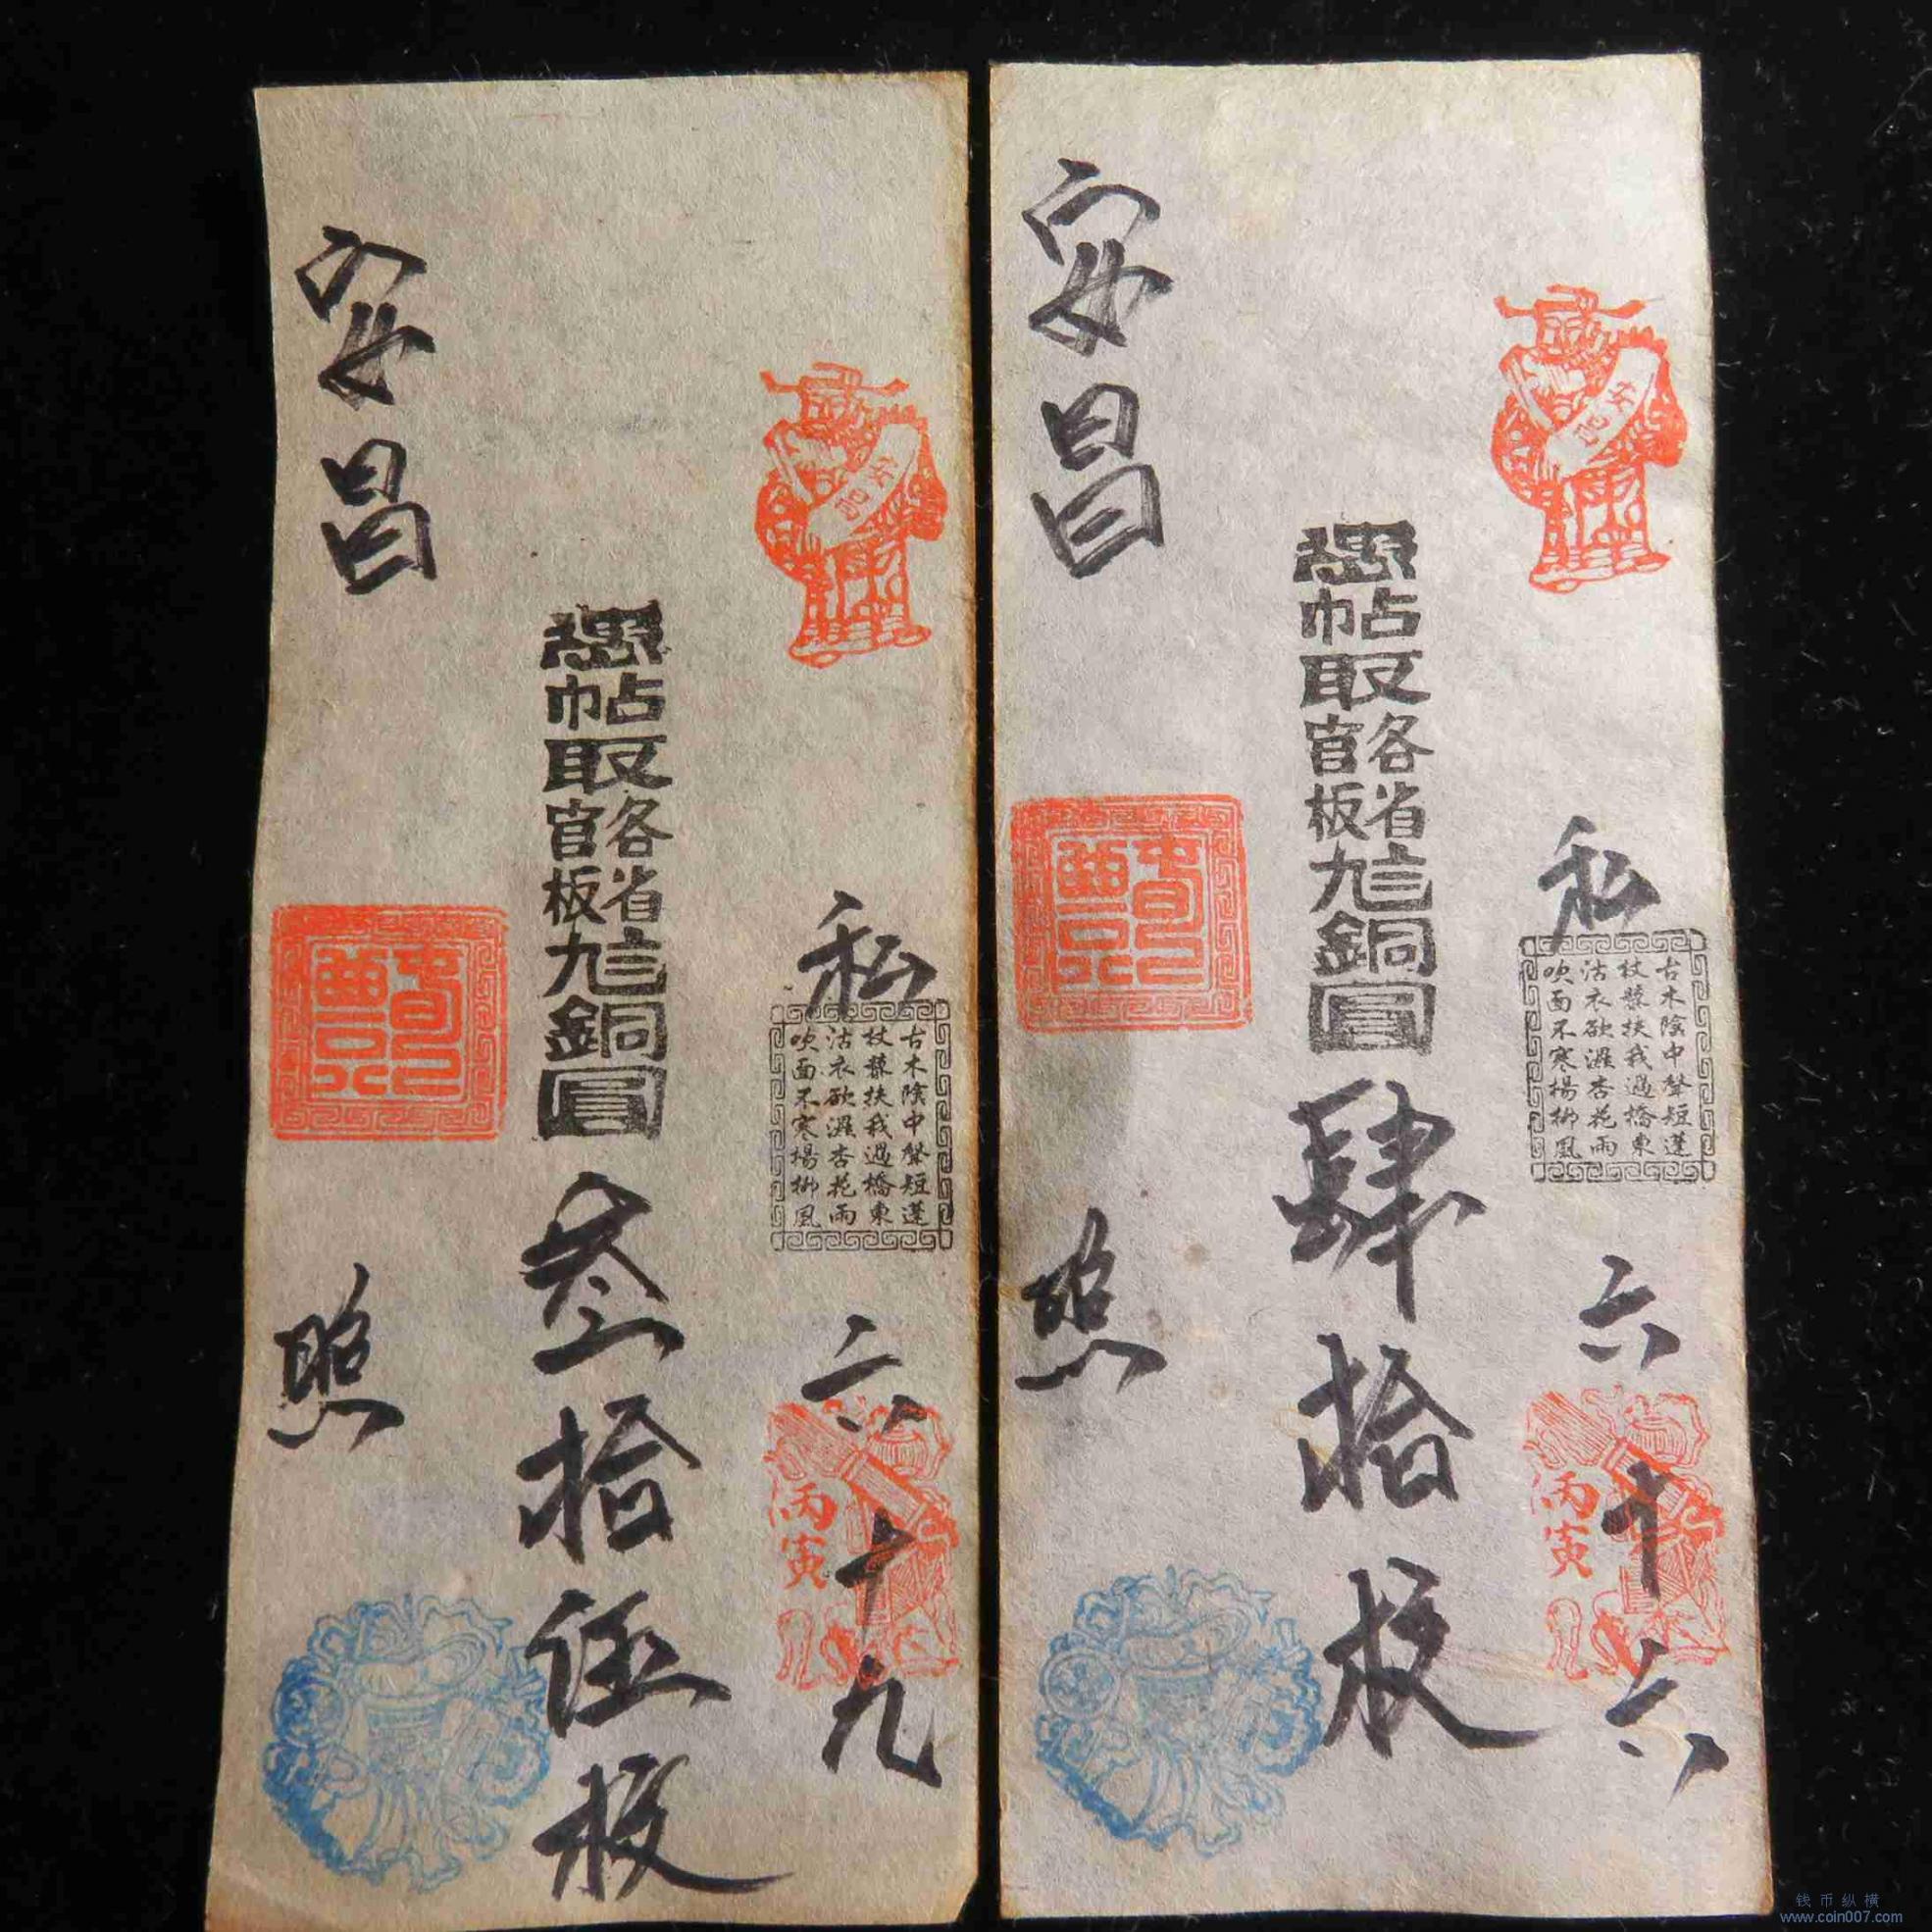 私
古木陰中聲短蓬
杖藜扶我過橋東
沾衣欲濕杏花雨
吹面不寒楊柳風
六十九
丙寅
憑帖取各省官板銅圓叁拾伍枚
安昌
照
私
古木陰中聲短蓬
杖藜扶我過橋東
沾衣欲濕杏花雨
吹面不寒楊柳風
六十六
丙寅
憑帖取各省官板銅圓肆拾枚
安昌
照
钱币纵横
www.coin007.com